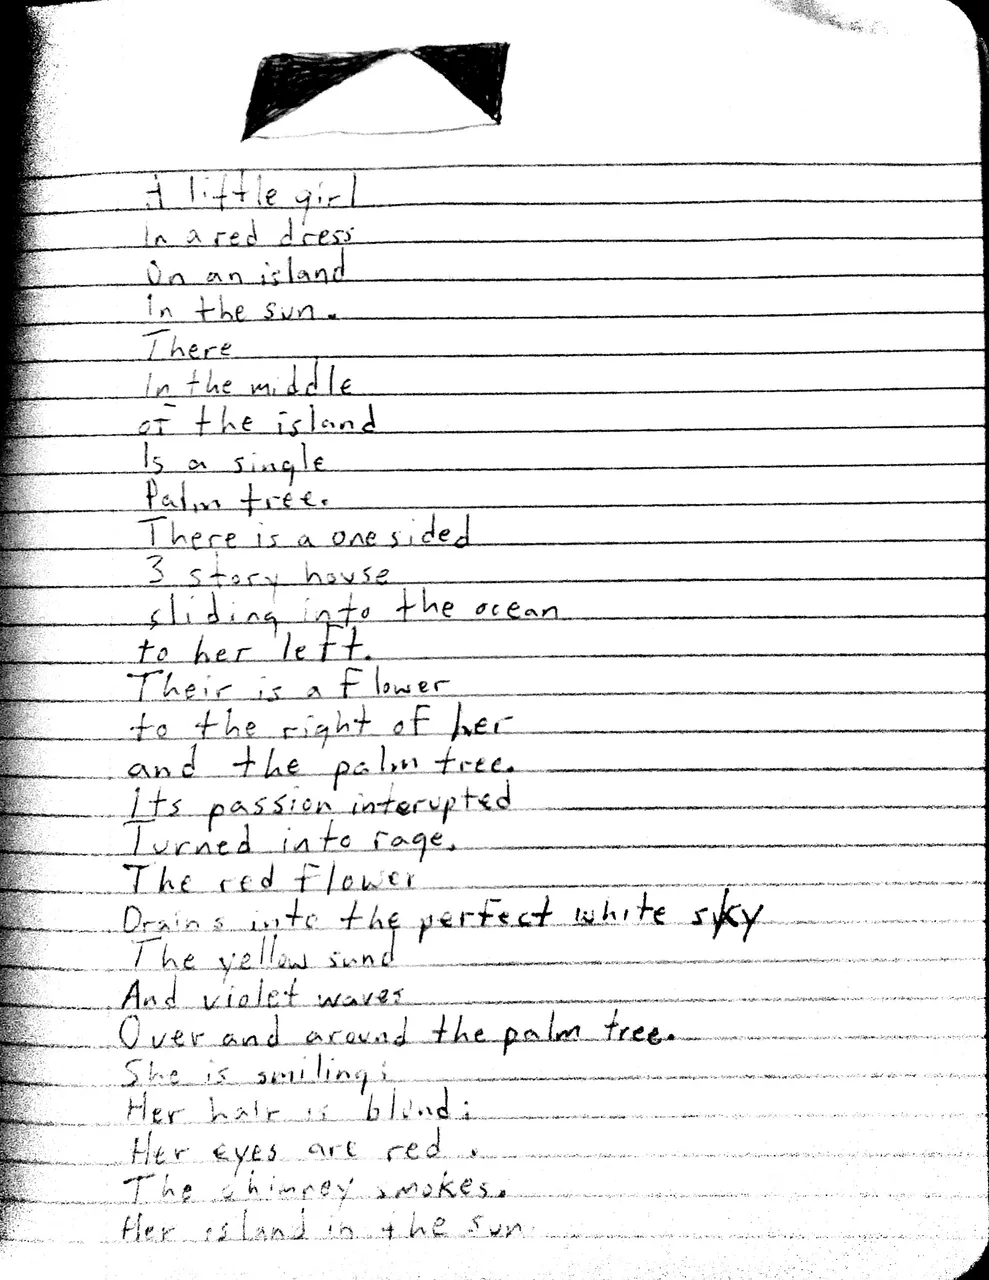 A little girl
In a red dress
On an island
In the sun.
There
In the middle
of the island
Is a single
Palm tree.
There is a one sided
3 story house
sliding into the ocean
to her left.
Their is a flower
to the right of her
and the palm tree.
Its passion interupted
Turned into rage.
The red flower
Drains into the perfect white sky
The yellow sand
And violet waves
Over and around the palm tree.
She is smiling;
Her hair is blond;
Her eyes are red.
The chimney smokes.
Her island in the sun